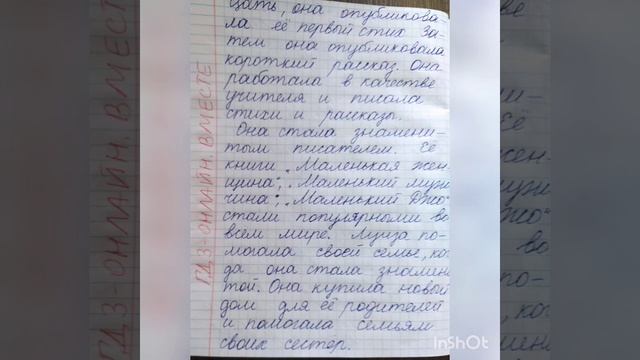 цать, она опубликова-
ла её первый стих За-
тем она опубликовала
короткий рассказ. Она
работала в качестве
учителя и писала
стихи и рассказы.
Она стала знамени-
тым писателем. Её
книги „Маленькая жен-
щина", „Маленький муж
чина", „Маленький Джо"
стали популярными во
всем мире. Луиза по-
могала своей семье, ког
да она стала знамен
той. Она купила новый
дом для её родителей
и помогала семьям
своих сестер.
ГДЗ-ОНЛАЙН. ВМЕСТЕ
InShOt